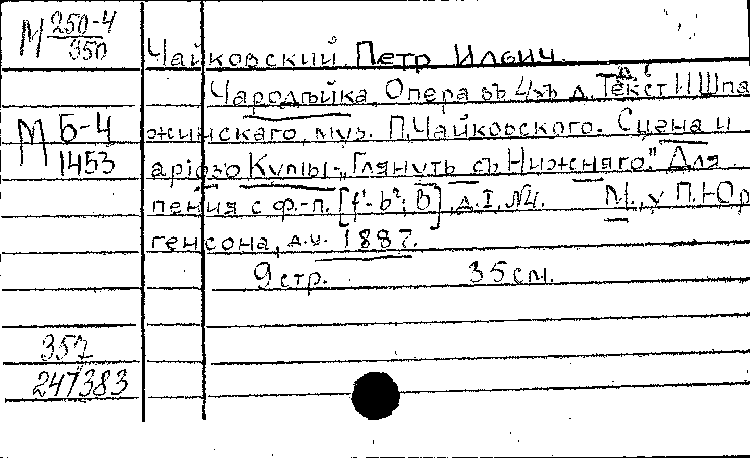 М 250-4
950
Чайковский Петр Ильич.
Чародѣйка. Опера въ 4хъ д. Текст И Шпа
М Б-4
1453
жинскаго, муз. П. Чайковского. Сцена и
арiозо Кумы-„Глянуть съ Нижняго." Для
пения с ф.-п. [f'-b²; B], д. I, №4. М., у П. Юр
генсона, д.ц. 1887.
9 стр. 35 см.
357
247383